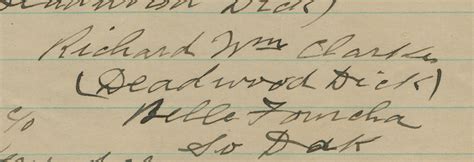 Deadwood Dick)
Richard Wm Clarke
(Deadwood Dick)
Belle Fourcha
% So Dak